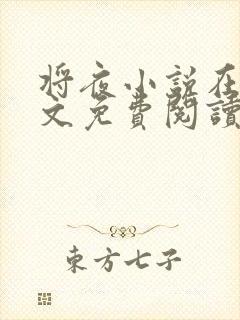 将夜小说在
文免費閱讀
東方七子